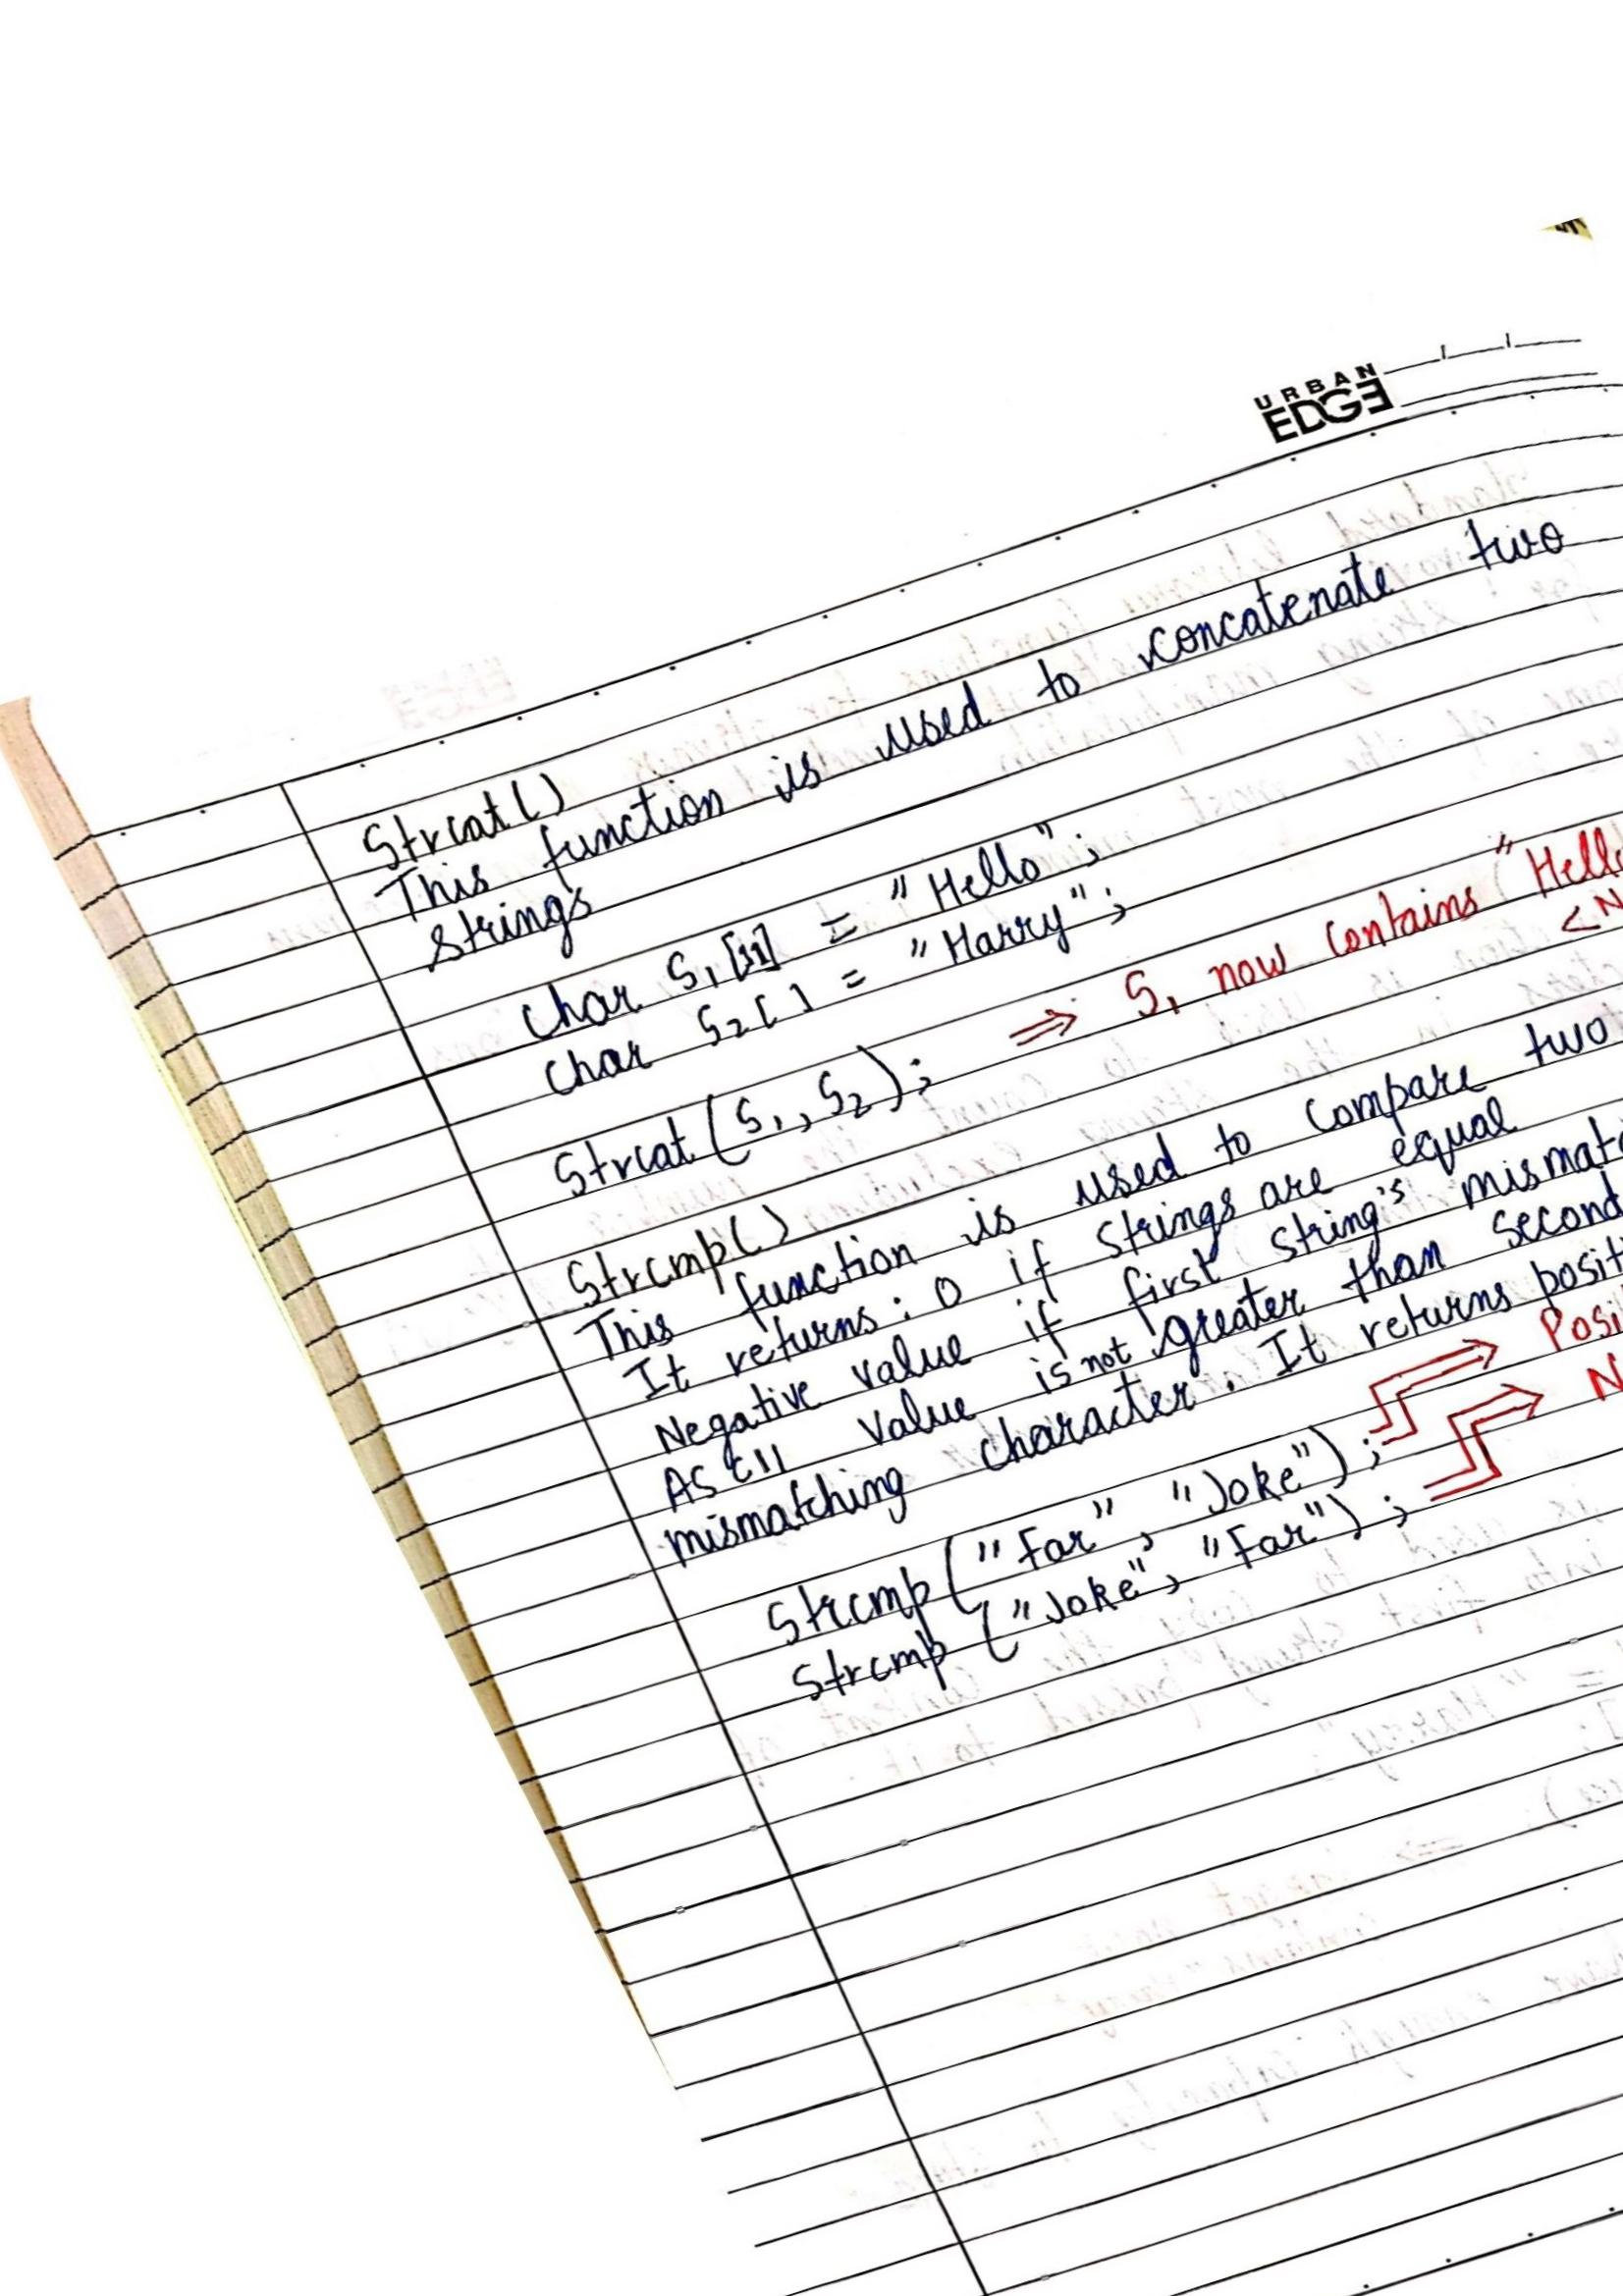 URBAN
EDGE
Strcat()
This function is used to concatenate two
strings
char S1[11] = "Hello";
char S2[ ] = "Harry";
Strcat(S1, S2); ⇒ S1 now contains "Hell
<N
Strcmp()
This function is used to compare two
It returns: 0 if strings are equal
Negative value if first string's mismat
ASCII value is not greater than second
mismatching character. It returns posit
Strcmp("Far", "Joke"); Posi
Strcmp("Joke", "Far"); N